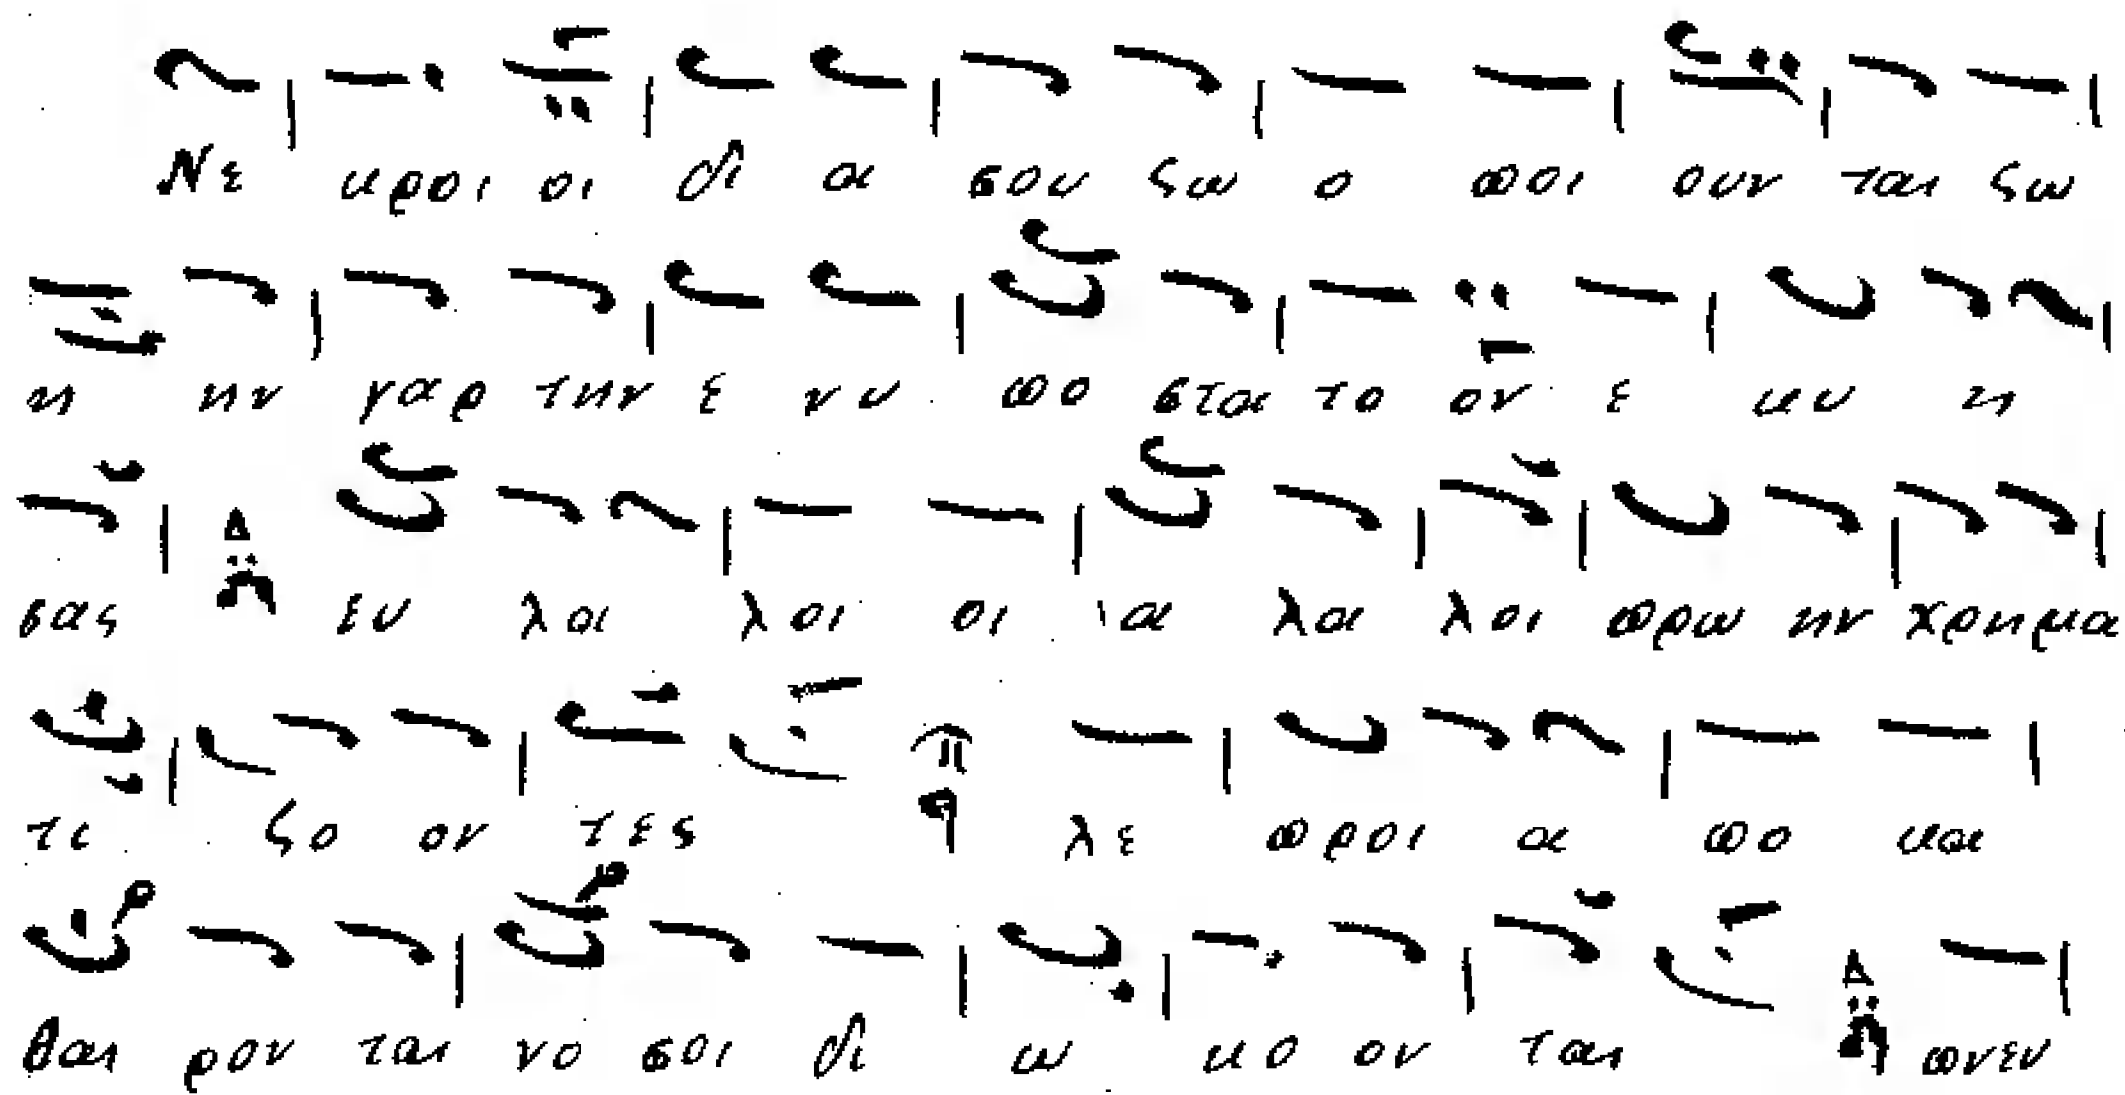 Νε κροι οι δι α σου ζω ο ποι ουν ται ζω
η ην γαρ την ε νυ πο στα το ον ε κυ η
σας Δ ευ λα λοι οι ι α λα λοι πρω ην χρημα
τι ζο ον τες π q λε προι α πο κα
θαι ρον ται νο σοι δι ω κο ον ται Δ πνευ